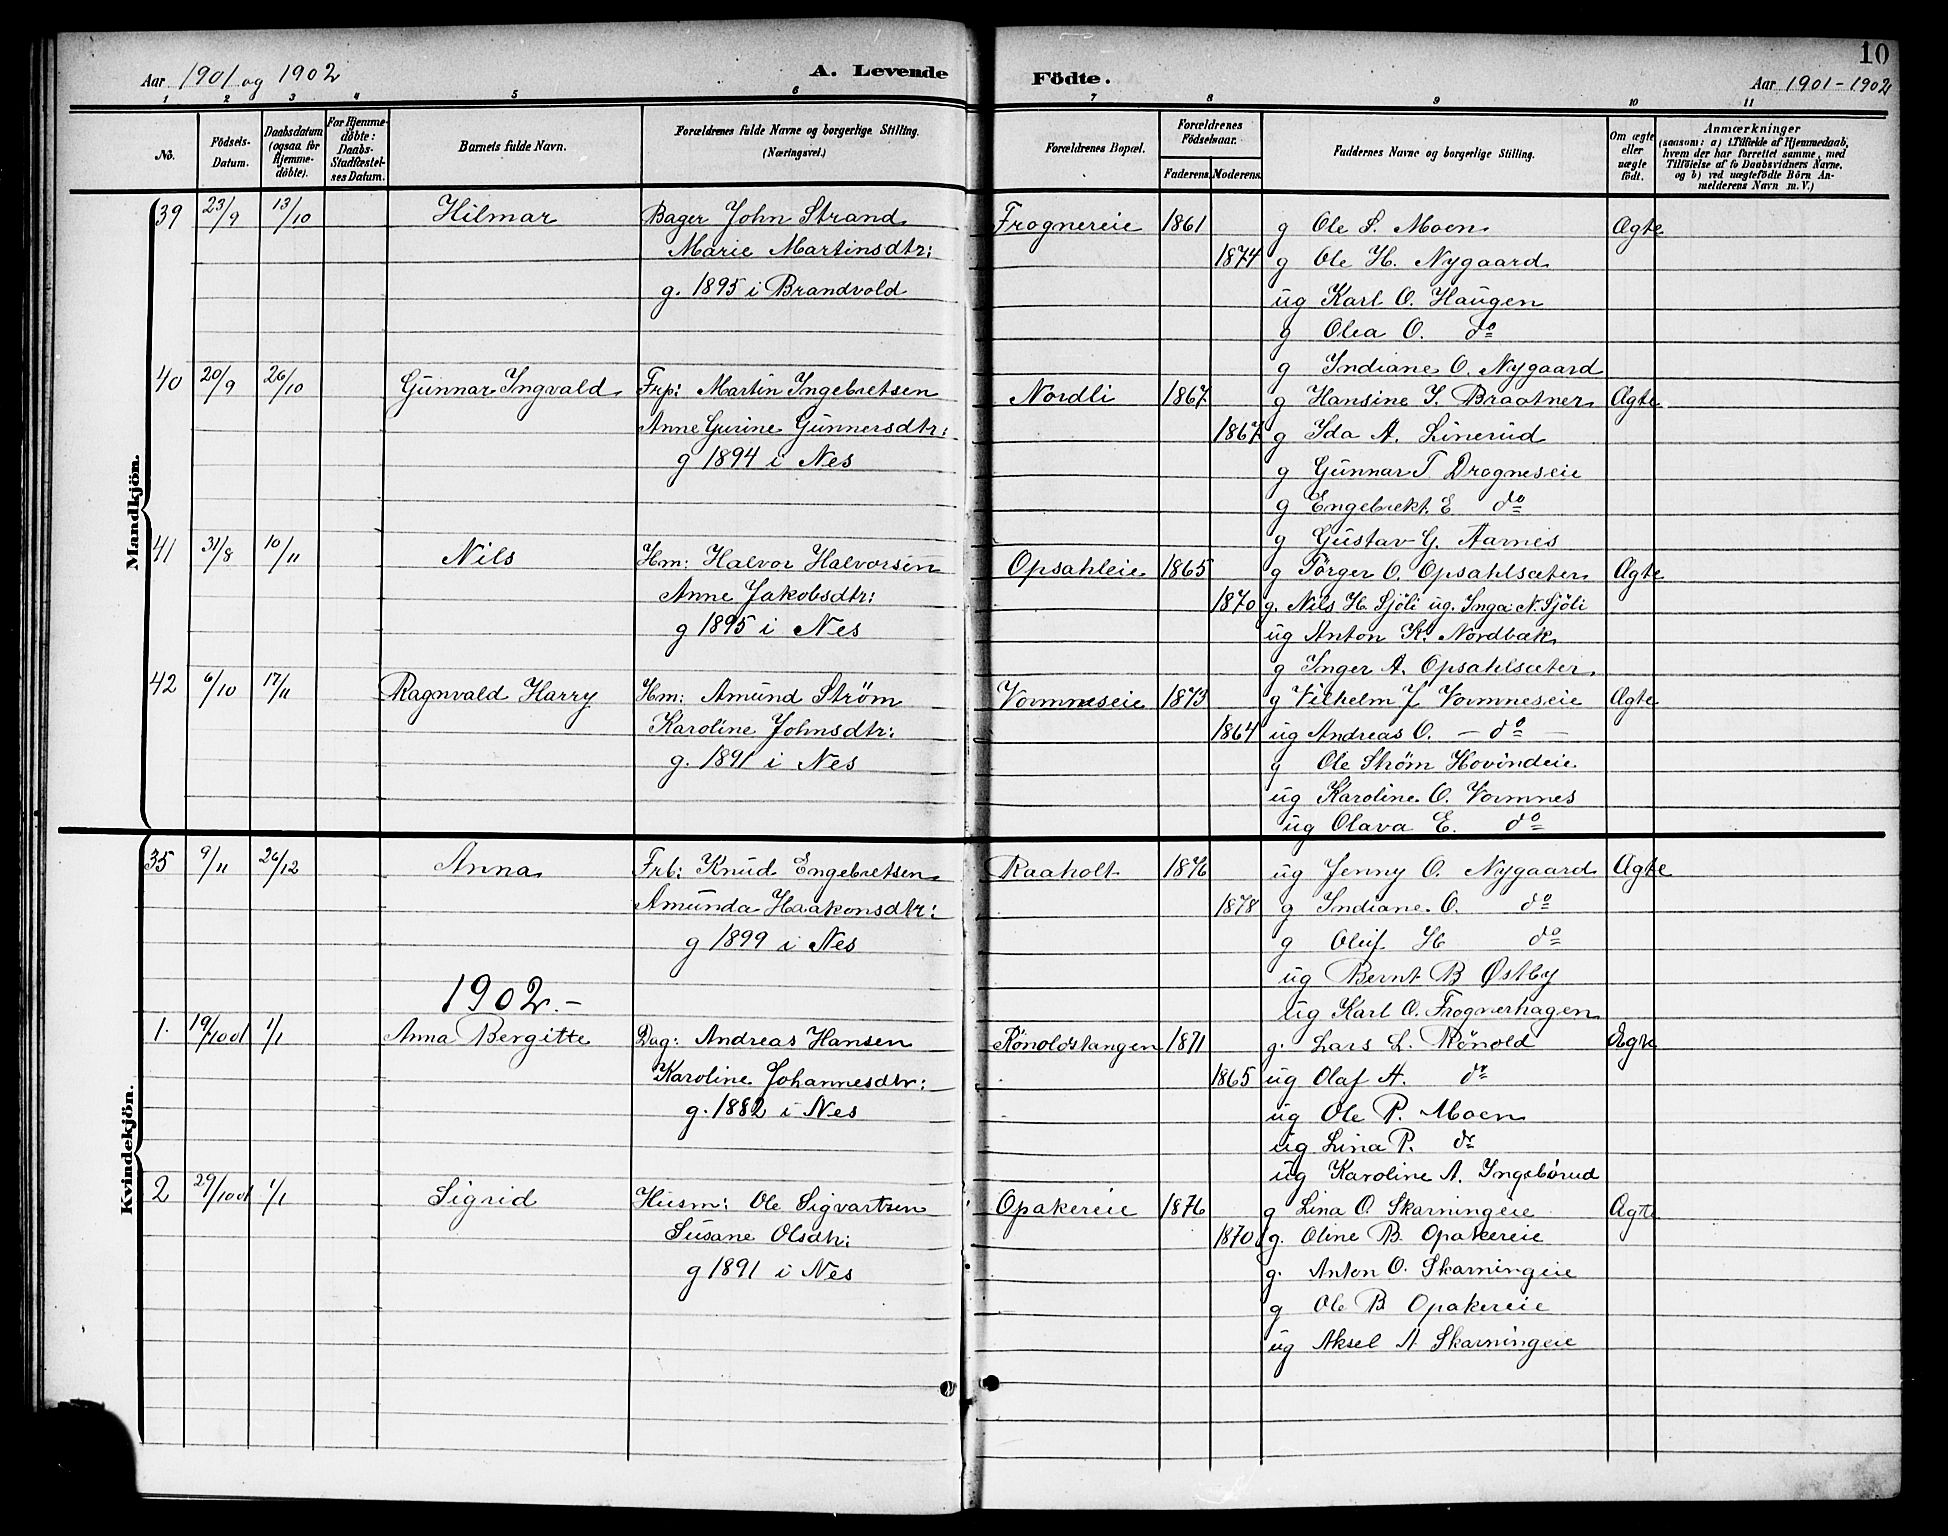 10
Aar 1901 og 1902
A. Levende Födte.
Aar 1901-1902
1 2 3 4 5 6 7 8 9 10 11
No.
Födsels-Datum.
Daabsdatum (ogsaa for Hjemme-döbte).
For Hjemme-döbte: Daabs-Stadfæstel-ses Datum.
Barnets fulde Navn.
Forældrenes fulde Navne og borgerlige Stilling. (Næringsvei.)
Forældrenes Bopæl.
Forældrenes Födselsaar.
Faderens. Moderens.
Faddernes Navne og borgerlige Stilling.
Om ægte eller uægte födt.
Anmærkninger
(saasom: a) i Tilfælde af Hjemmedaab,
hvem der har forrettet samme, med
Tilföielse af to Daabsvidners Navne,
og b) ved uægtefödte Börn An-
melderens Navn m. V.)
Mandkjön.
39 23/9 13/10 Hilmar Bager John Strand Frognereie 1861 g Ole S. Moen Ægte
Marie Martinsdtr: 1874 g Ole H. Nygaard
g. 1895 i Brandvold ug Karl O. Haugen
g Olea O. do
g Indiane O. Nygaard
40 20/9 26/10 Gunnar Ingvald Frp: Martin Ingebretsen Nordli 1867 g Hansine I. Braatner Ægte
Anne Gurine Gunnersdtr: 1867 g Ida A. Linerud
g 1894 i Nes g Gunnar T. Drogneseie
g Engebrekt E do
g Gustav G. Aarnes
41 31/8 10/11 Nils Hm: Halvor Halvorsen Opsahleie 1865 g Törger O. Opsahlsæter Ægte
Anne Jakobsdtr: 1870 g. Nils H. Sjöli ug. Inga N. Sjöli
g 1895 i Nes ug Anton K. Nordbæk
g Inger A. Opsahlsæter
42 6/10 17/11 Ragnvald Harry Hm: Amund Strøm Vormneseie 1873 g Vilhelm J Vormneseie Ægte
Karoline Johnsdtr: 1864 ug Andreas O. - do -
g. 1891 i Nes g Ole Strøm Hovindeie
ug Karoline O. Vormnes
ug Olava E. do
Kvindekjön.
35 9/11 26/12 Anna Frb: Knud Engebretsen Raaholt 1876 ug Jenny O. Nygaard Ægte
Amunda Haakonsdtr: 1878 g Indiane O. do
g 1899 i Nes g Oluf H do
ug Bernt B Østby
1902.-
ug Karl O. Frognerhagen
1. 19/10 01 1/1 Anna Bergitte Dag: Andreas Hansen Rönoldstangen 1871 g. Lars L. Rönold Ægte
Karoline Johannesdtr: 1865 ug Olaf A. do
g. 1882 i Nes ug Ole P. Moen
ug Lina P. do
ug Karoline A. Ingebörud
2 29/10 01 1/1 Sigrid Husm: Ole Sigvartsen Opakereie 1876 g Lina O. Skarningeie Ægte
Susane Olsdtr: 1870 g. Oline B. Opakereie
g 1891 i Nes g. Anton O. Skarningeie
g Ole B Opakereie
ug Aksel A Skarningeie